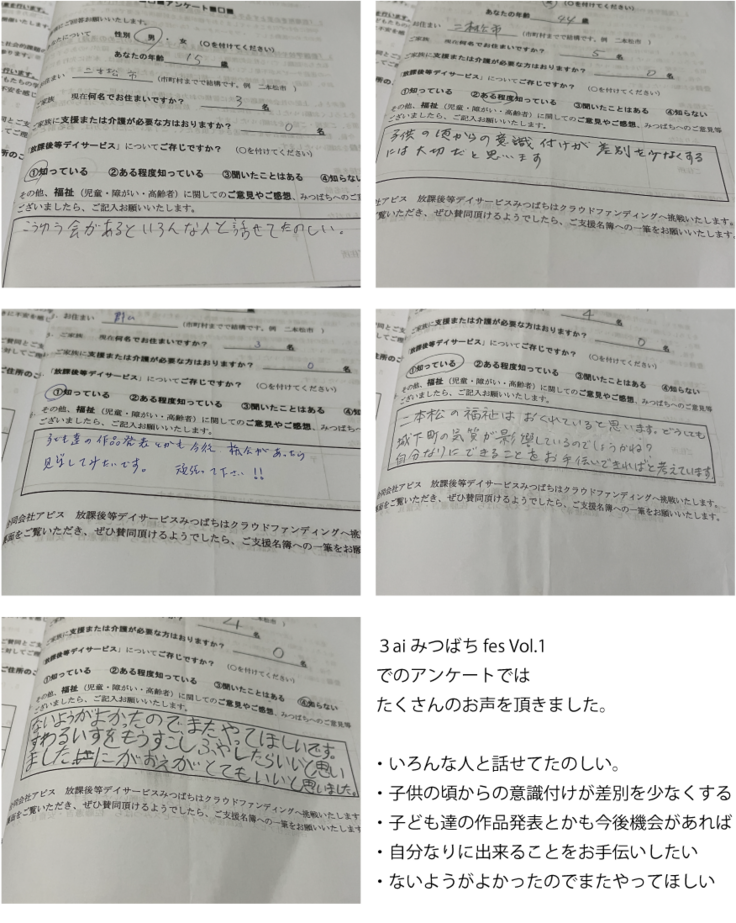 アンケート
性別 男・女 (〇を付けてください)
あなたの年齢 15 歳
二本松市 (市町村までで結構です。例 二本松市 )
ご家族 現在何名でお住まいですか? 3 名
ご家族に支援または介護が必要な方はおりますか? 0 名
「放課後等デイサービス」についてご存じですか? (〇を付けてください)
①知っている ②ある程度知っている ③聞いたことはある ④知らない
その他、福祉(児童・障がい・高齢者)に関してのご意見やご感想、みつばちへのご
ございましたら、ご記入お願いいたします。
こうゆう会があるといろんな人と話せてたのしい。
あなたの年齢 44 歳
お住まい 二本松市 (市町村までで結構です。例 二本松市 )
ご家族 現在何名でお住まいですか? 5 名
ご家族に支援または介護が必要な方はおりますか? 0 名
「放課後等デイサービス」についてご存じですか? (〇を付けてください)
①知っている ②ある程度知っている ③聞いたことはある ④知らない
その他、福祉(児童・障がい・高齢者)に関してのご意見やご感想、みつばちへのご意見等
ございましたら、ご記入お願いいたします。
子供の頃からの意識付けが差別を少なくする
には大切だと思います
会社アビス 放課後等デイサービスみつばちはクラウドファンディングへ挑戦いたします。
ご覧いただき、ぜひ賛同頂けるようでしたら、ご支援名簿への一筆をお願いいたします。
お住まい 郡山 (市町村までで結構です。例 二本松市 )
ご家族 現在何名でお住まいですか? 3 名
ご家族に支援または介護が必要な方はおりますか? 0 名
「放課後等デイサービス」についてご存じですか? (〇を付けてください)
①知っている ②ある程度知っている ③聞いたことはある ④知
その他、福祉(児童・障がい・高齢者)に関してのご意見やご感想、みつばち
ございましたら、ご記入お願いいたします。
子ども達の作品発表とかも今後 機会があったら
見学してみたいです。 頑張って下さい!!
合同会社アビス 放課後等デイサービスみつばちはクラウドファンディングへ挑
面をご覧いただき、ぜひ賛同頂けるようでしたら、ご支援名簿への一筆をお願
4 名
0 名
(〇を付けてください)
①知っている ②ある程度知っている ③聞いたことはある ④知らない
その他、福祉(児童・障がい・高齢者)に関してのご意見やご感想、みつばちへのご意見等
ございましたら、ご記入お願いいたします。
二本松の福祉はおくれていると思います。どうしても
城下町の気質が影響しているのでしょうかね?
自分なりにできることをお手伝いできればと考えています。
合同会社アビス 放課後等デイサービスみつばちはクラウドファンディングへ挑戦いたします。
面をご覧いただき、ぜひ賛同頂けるようでしたら、ご支援名簿への一筆をお願いいたします。
4 名
ご家族に支援または介護が必要な方はおりますか? 0 名
「放課後等デイサービス」についてご存じですか? (〇を付けてください)
①知っている ②ある程度知っている ③聞いたことはある ④知らない
その他、福祉(児童・障がい・高齢者)に関してのご意見やご感想、みつばちへのご意見等
ございましたら、ご記入お願いいたします。
ないようがよかったので、またやってほしいです。
すわるいすをもうすこしふやしたらいいと思い
ました にがおえがとてもいいと思いました。
合同会社アビス 放課後等デイサービスみつばちはクラウドファンディングへ挑戦いたします
面をご覧いただき、ぜひ賛同頂けるようでしたら、ご支援名簿への一筆をお願いいたします
3ai みつばち fes Vol.1
でのアンケートでは
たくさんのお声を頂きました。
・いろんな人と話せてたのしい。
・子供の頃からの意識付けが差別を少なくする
・子ども達の作品発表とかも今後機会があれば
・自分なりに出来ることをお手伝いしたい
・ないようがよかったのでまたやってほしい